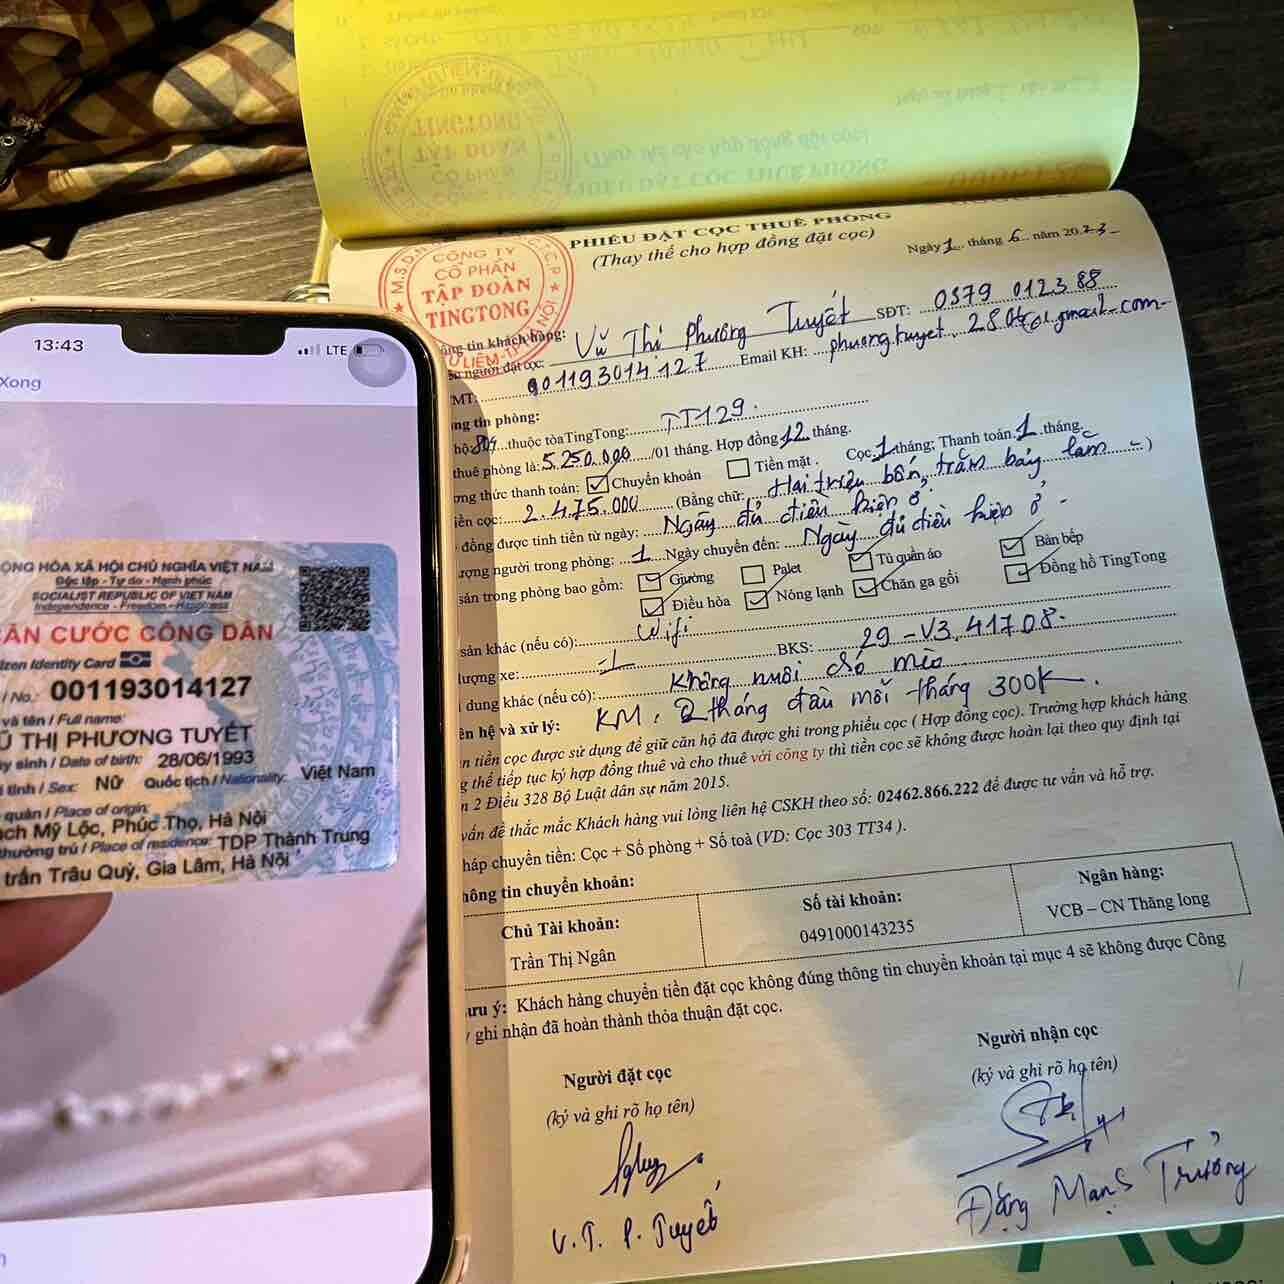 PHIẾU ĐẶT CỌC THUÊ PHÒNG
(Thay thế cho hợp đồng đặt cọc)
Ngày 1 tháng 6 năm 2023
CÔNG TY
CỔ PHẦN
TẬP ĐOÀN
TINGTONG
khách hàng:
người đặt cọc: Vũ Thị Phương Tuyết SĐT: 0379 012388
MT: 001193014127 Email KH:
ng tin phòng:
hộ 804 thuộc tòa TingTong: TT129.
thuê phòng là: 5.250.000/01 tháng. Hợp đồng 12 tháng. Cọc 1 tháng; Thanh toán 1 tháng.
ơng thức thanh toán: Chuyển khoản Tiền mặt.
iền cọc: 2.475.000 (Bằng chữ: Hai triệu bốn trăm bảy lăm )
đồng được tính tiền từ ngày: Ngày đủ điều kiện ở
ượng người trong phòng: 1 Ngày chuyển đến: Ngày đủ điều kiện ở -
sản trong phòng bao gồm: Giường Palet Tủ quần áo Bàn bếp
Điều hòa Nóng lạnh Chăn ga gối Đồng hồ TingTong
sản khác (nếu có): Wifi
lượng xe: 1 BKS: 29-V3.41708.
dung khác (nếu có): Không nuôi chó mèo
ên hệ và xử lý: KM: 2 tháng đầu mỗi tháng 300K.
n tiền cọc được sử dụng để giữ căn hộ đã được ghi trong phiếu cọc ( Hợp đồng cọc). Trường hợp khách hàng
g thể tiếp tục ký hợp đồng thuê và cho thuê với công ty thì tiền cọc sẽ không được hoàn lại theo quy định tại
n 2 Điều 328 Bộ Luật dân sự năm 2015.
vấn đề thắc mắc Khách hàng vui lòng liên hệ CSKH theo số: 02462.866.222 để được tư vấn và hỗ trợ.
háp chuyển tiền: Cọc + Số phòng + Số toà (VD: Cọc 303 TT34 ).
hông tin chuyển khoản:
Chủ Tài khoản: Số tài khoản: Ngân hàng:
Trần Thị Ngân 0491000143235 VCB – CN Thăng long
ưu ý: Khách hàng chuyển tiền đặt cọc không đúng thông tin chuyển khoản tại mục 4 sẽ không được Công
ghi nhận đã hoàn thành thỏa thuận đặt cọc.
Người đặt cọc Người nhận cọc
(ký và ghi rõ họ tên) (ký và ghi rõ họ tên)
V. T. P. Tuyết Đặng Mạnh Trường
13:43 LTE
Xong
ỘNG HÒA XÃ HỘI CHỦ NGHĨA VIỆT NAM
Độc lập - Tự do - Hạnh phúc
SOCIALIST REPUBLIC OF VIET NAM
Independence - Freedom - Happiness
CĂN CƯỚC CÔNG DÂN
izen Identity Card
/ No.: 001193014127
và tên / Full name:
Ũ THỊ PHƯƠNG TUYẾT
y sinh / Date of birth: 28/06/1993
i tính / Sex: NỮ Quốc tịch / Nationality: Việt Nam
quán / Place of origin:
ạch Mỹ Lộc, Phúc Thọ, Hà Nội
thường trú / Place of residence: TDP Thành Trung
trấn Trâu Quỳ, Gia Lâm, Hà Nội